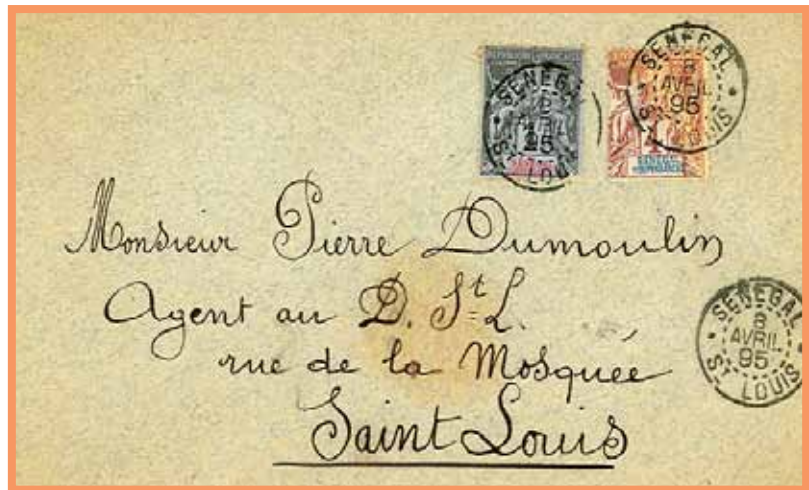 SENEGAL
8
AVRIL
95
ST LOUIS
SENEGAL
8
AVRIL
95
ST LOUIS
Monsieur Pierre Dumoulin
Agent au D. St L.
rue de la Mosquée
Saint Louis
SENEGAL
8
AVRIL
95
ST LOUIS